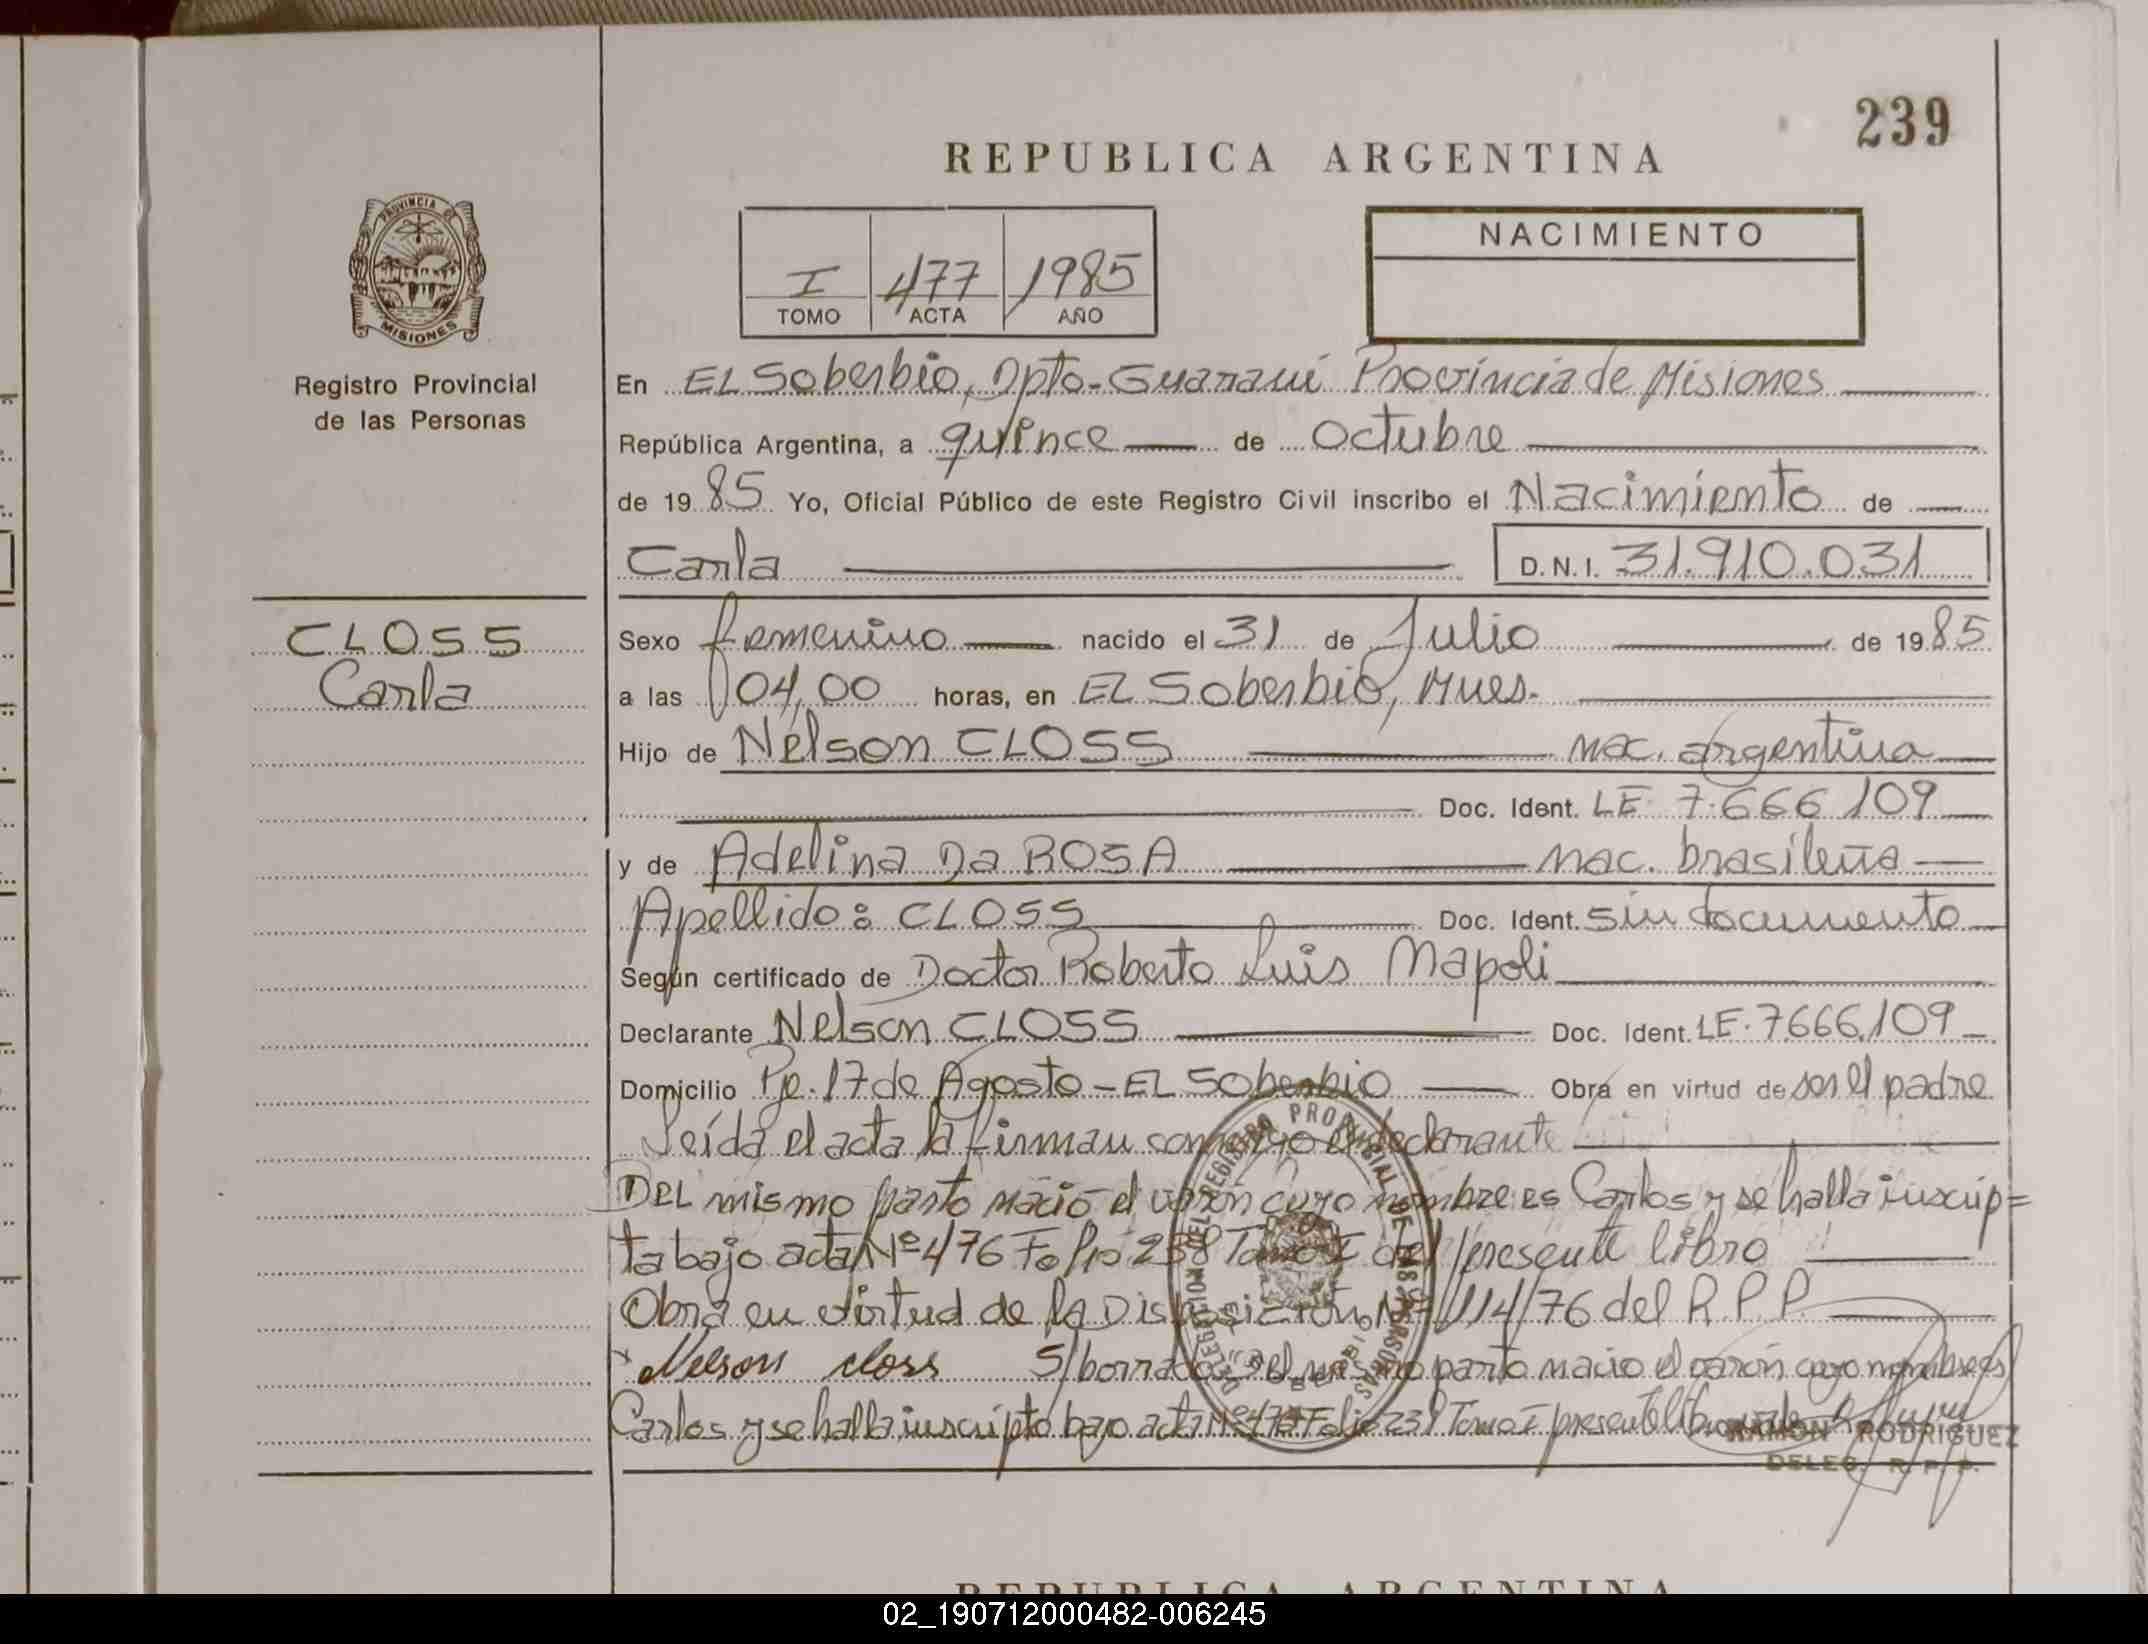 239
REPUBLICA ARGENTINA
PROVINCIA DE
MISIONES
Registro Provincial
de las Personas
I 477 1985
TOMO ACTA AÑO
NACIMIENTO
En EL Soberbio, Dpto- Guaraní Provincia de Misiones
República Argentina, a quince de Octubre
de 1985 Yo, Oficial Público de este Registro Civil inscribo el Nacimiento de
Carla D.N.I. 31.910.031
CLOSS
Carla
Sexo femenino nacido el 31 de Julio de 1985
a las 04,00 horas, en EL Soberbio, Mnes.
Hijo de Nelson CLOSS nac. argentina
Doc. Ident. LE 7.666 109
y de Adelina Da ROSA nac. brasileña
Apellido: CLOSS Doc. Ident. sin documento
Según certificado de Doctor Roberto Luis Napoli
Declarante Nelson CLOSS Doc. Ident. LE. 7.666.109
Domicilio Pje. 17 de Agosto - EL Soberbio Obra en virtud de ser el padre
Leída el acta la firman conmigo el declarante
DEL mismo parto nació el varón cuyo nombre es Carlos y se halla inscrip=
ta bajo acta Nº 476 Folio 238 Tomo I del presente libro
Obra en virtud de la Disposición Nº 114/76 del R.P.P.
Nelson closs S/borrado: Del mismo parto nacio el varón cuyo nombre es
Carlos y se halla inscripto bajo acta Nº 476 Folio 238 Tomo I presente libro vale
DELEGACION DEL REGISTRO PROVINCIAL DE LAS PERSONAS
RAMON RODRIGUEZ
DELEG. R. P. P.
REPUBLICA ARGENTINA
02_190712000482-006245